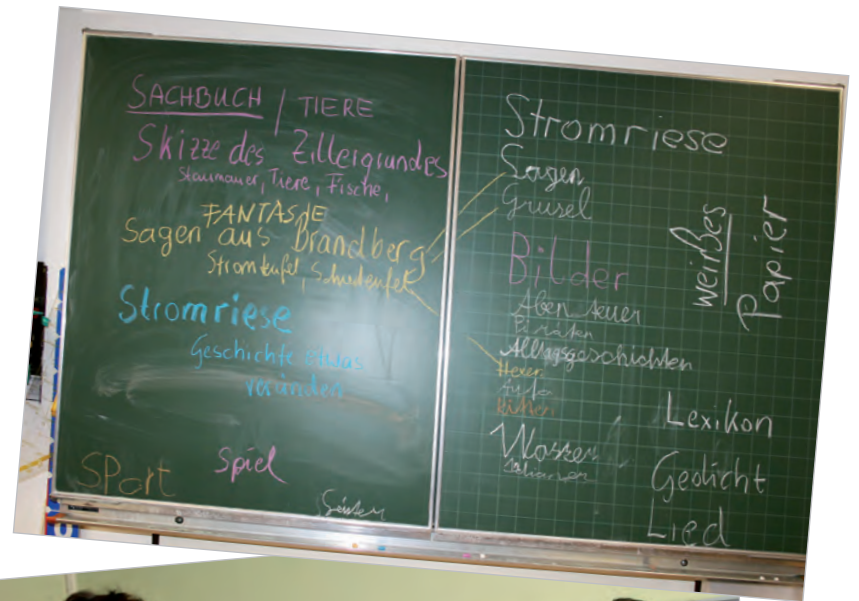 SACHBUCH / TIERE
Skizze des Zillergrundes
Staumauer, Tiere, Fische,
FANTASIE
Sagen aus Brandberg
Stromteufel,
Stromriese
Geschichte etwas
verändern
SPort
Spiel
Stromriese
Sagen
Grusel
Bilder
Abenteuer
Piraten
Alltagsgeschichten
Hexen
Autos
Wasser
weißes
Papier
Lexikon
Gedicht
Lied